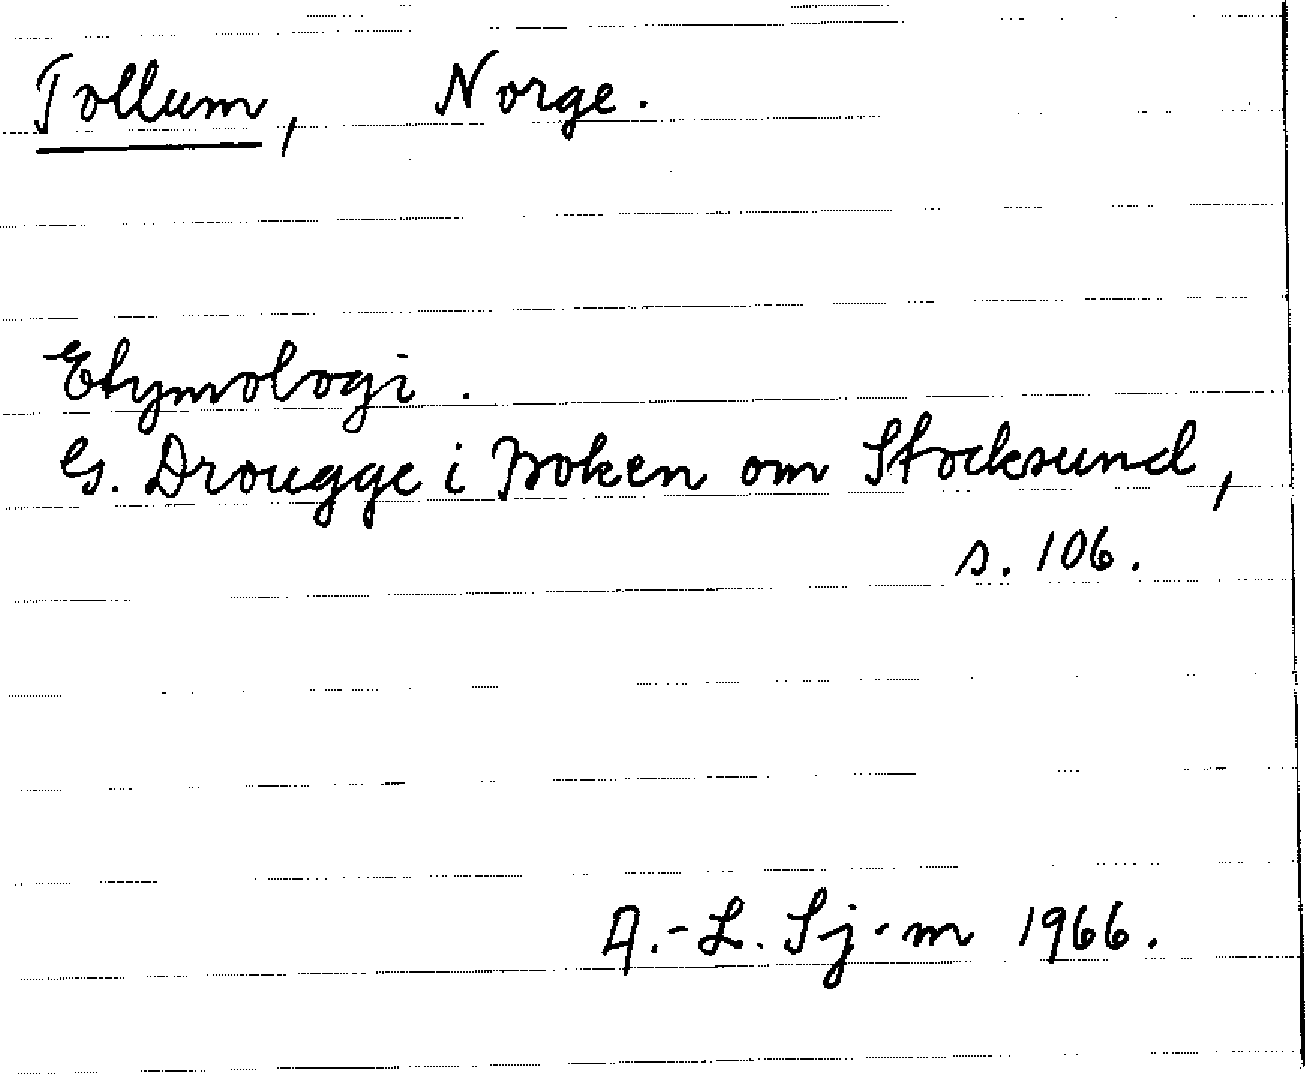 Tollum, Norge.
Etymologi.
G. Drougge i Boken om Stocksund,
s. 106.
A.-L. Sj-m 1966.